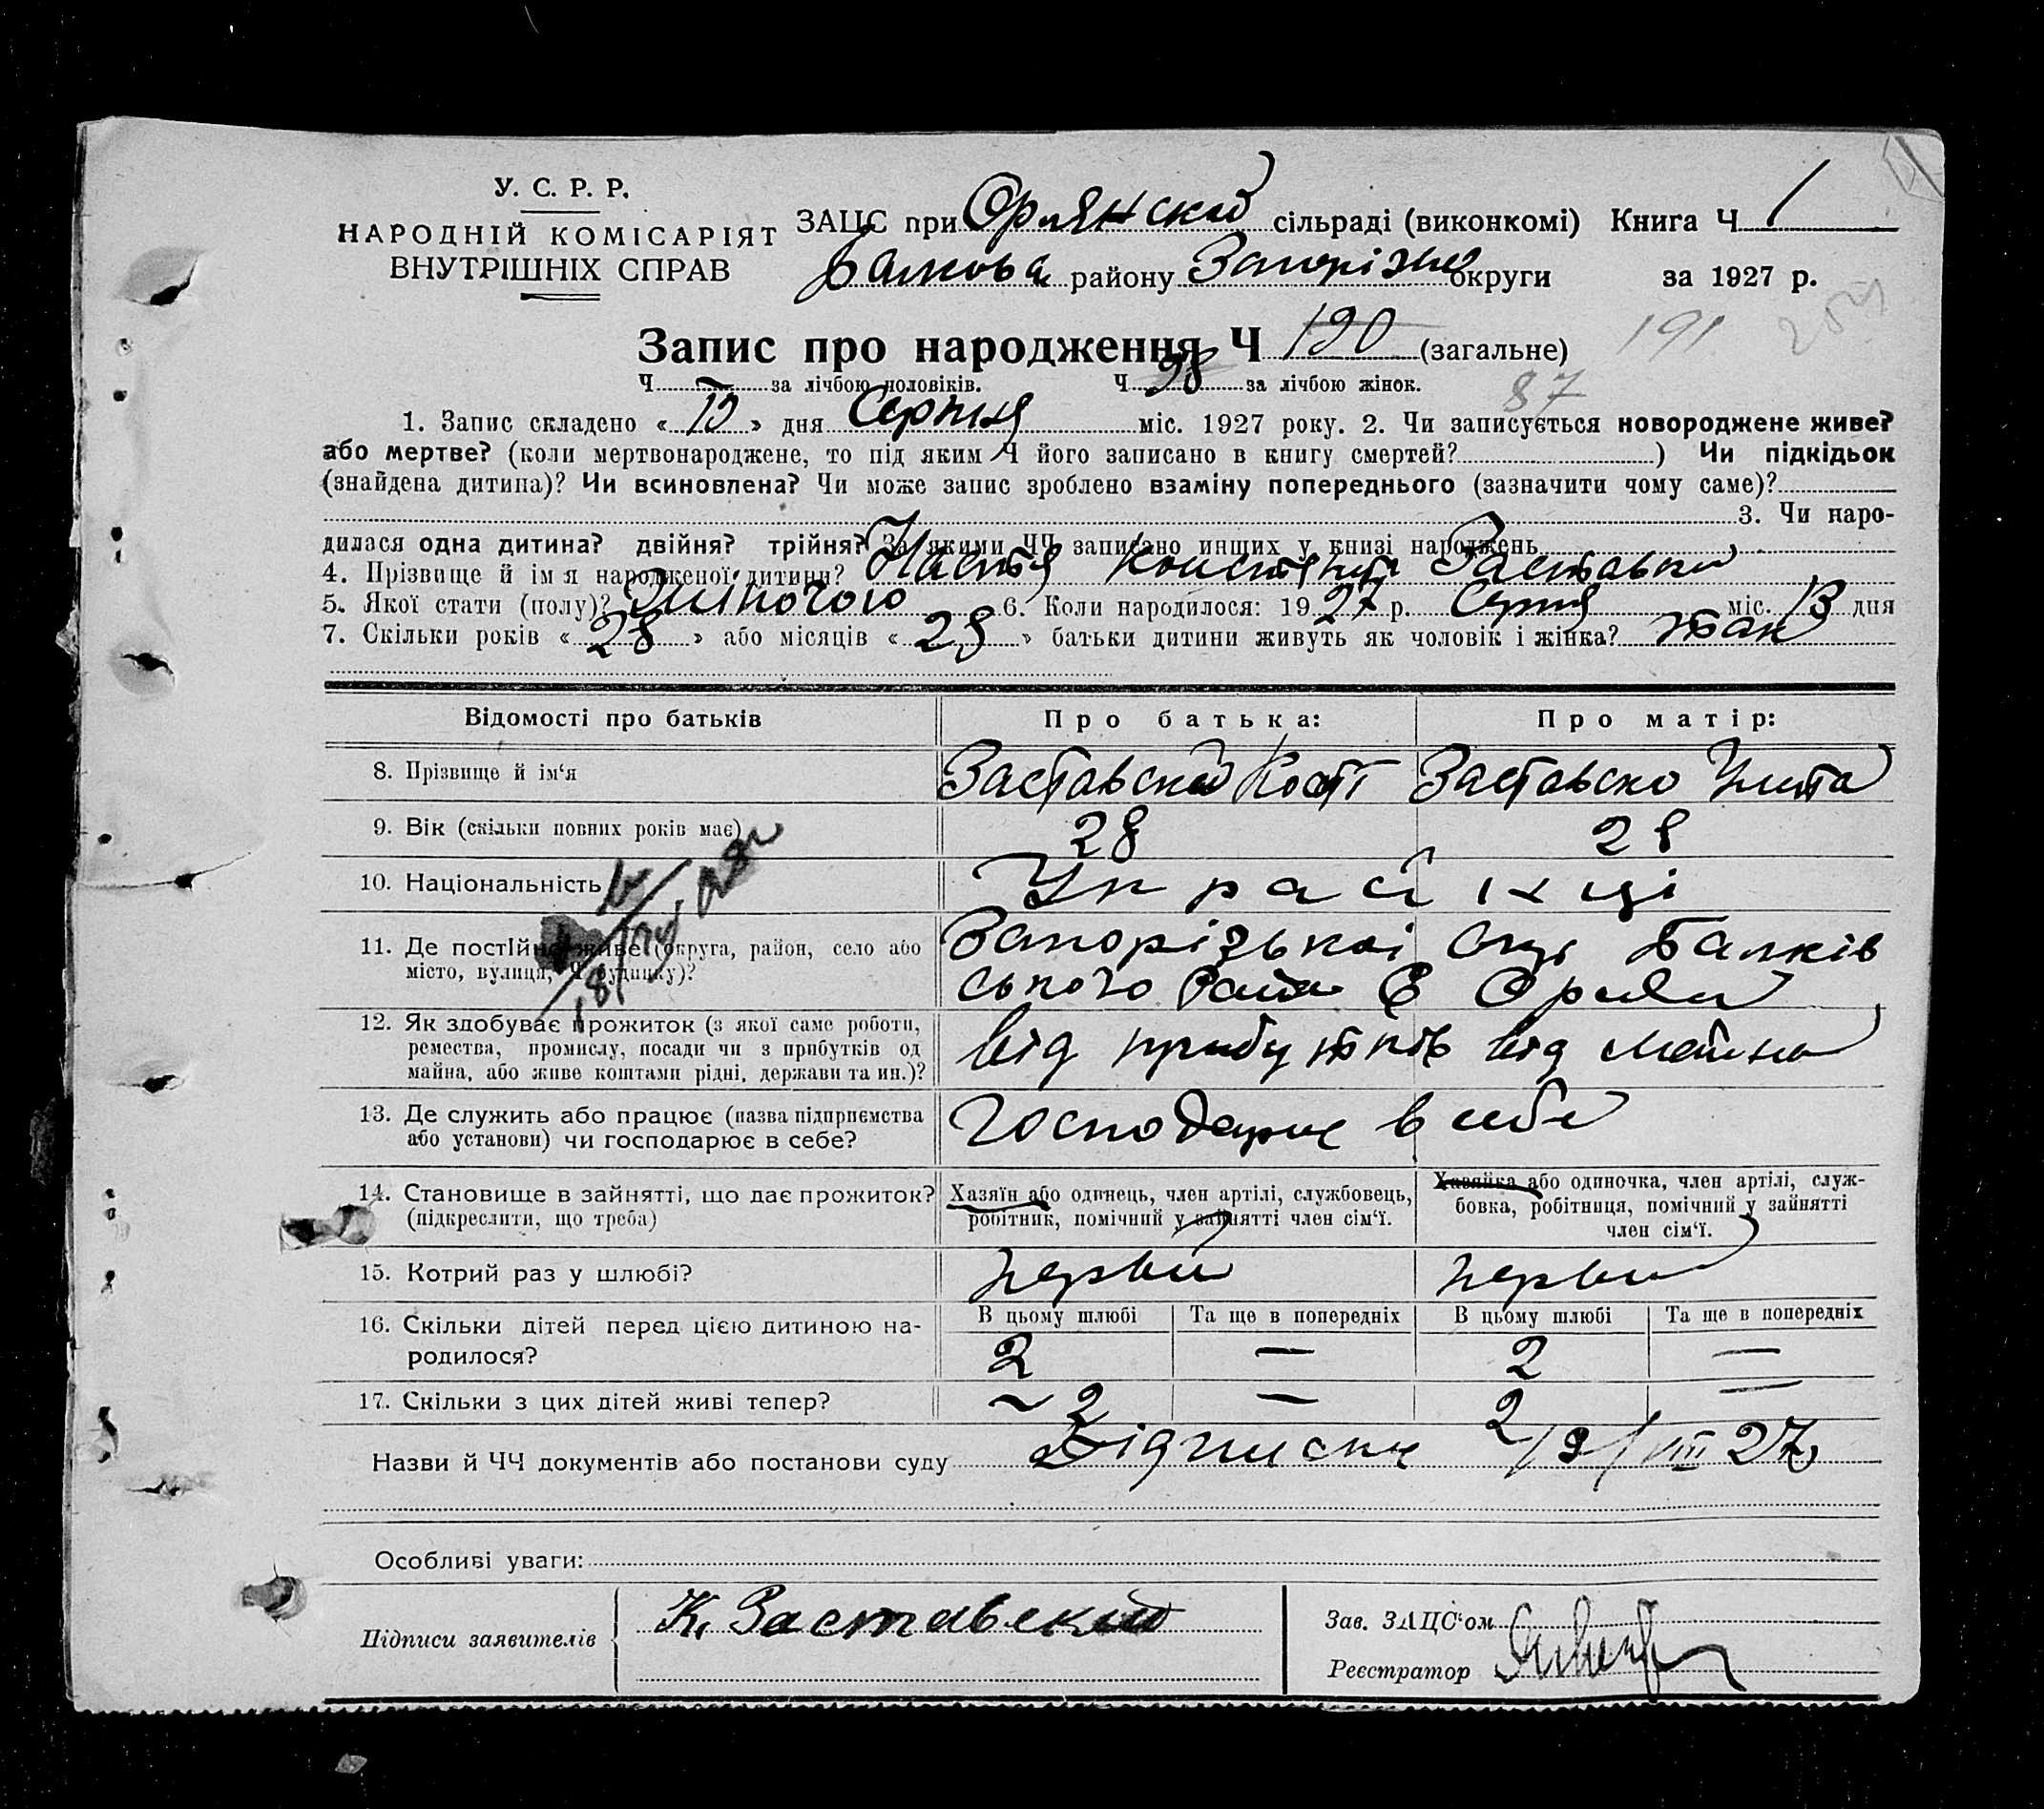 У. С. Р. Р.
НАРОДНІЙ КОМІСАРІЯТ
ВНУТРІШНІХ СПРАВ
ЗАЦС при Орлянскій сільраді (виконкомі) Книга Ч 1
району Запорізької округи за 1927 р.
Запис про народження Ч 190 (загальне) 191
Ч — за лічбою чоловіків. Ч 98 за лічбою жінок. 87
1. Запис складено « » дня Серпня міс. 1927 року. 2. Чи записується новороджене живе?
або мертве? (коли мертвонароджене, то під яким Ч його записано в книгу смертей? ) Чи підкідьок
(знайдена дитина)? Чи всиновлена? Чи може запис зроблено взаміну попереднього (зазначити чому саме)?
3. Чи наро-
дилася одна дитина? двійня? трійня? За якими ЧЧ записано инших у книзі народжень
4. Прізвище й ім я народженої дитини? Настя
5. Якої стати (полу)? Жіночого 6. Коли народилося: 1927 р. Серпня міс. 13 дня
7. Скільки років « 28 » або місяців « 28 » батьки дитини живуть як чоловік і жінка? так
Відомості про батьків Про батька: Про матір:
8. Прізвище й ім‘я Заставский Кост
9. Вік (скільки повних років має) 28 28
10. Національність Українці
11. Де постійно живе (округа, район, село або Запорізької Окр Балків
місто, вулиця, Ч будинку)? ського Району С
12. Як здобуває прожиток (з якої саме роботи,
ремества, промислу, посади чи з прибутків од від прибутків від майна
майна, або живе коштами рідні, держави та ин.)?
13. Де служить або працює (назва підприємства Господарює в себе
або установи) чи господарює в себе?
14. Становище в зайнятті, що дає прожиток? Хазяїн або одинець, член артілі, службовець, Хазяйка або одиночка, член артілі, служ-
(підкреслити, що треба) робітник, помічний у зайнятті член сім‘ї. бовка, робітниця, помічний у зайнятті
член сім‘ї.
15. Котрий раз у шлюбі? первий первий
16. Скільки дітей перед цією дитиною на- В цьому шлюбі Та ще в попередніх В цьому шлюбі Та ще в попередніх
родилося? 2 — 2 —
17. Скільки з цих дітей живі тепер? 2 — 2 —
Назви й ЧЧ документів або постанови суду
Особливі уваги:
Підписи заявителів К. Заставский
Зав. ЗАЦС‘ом
Реєстратор